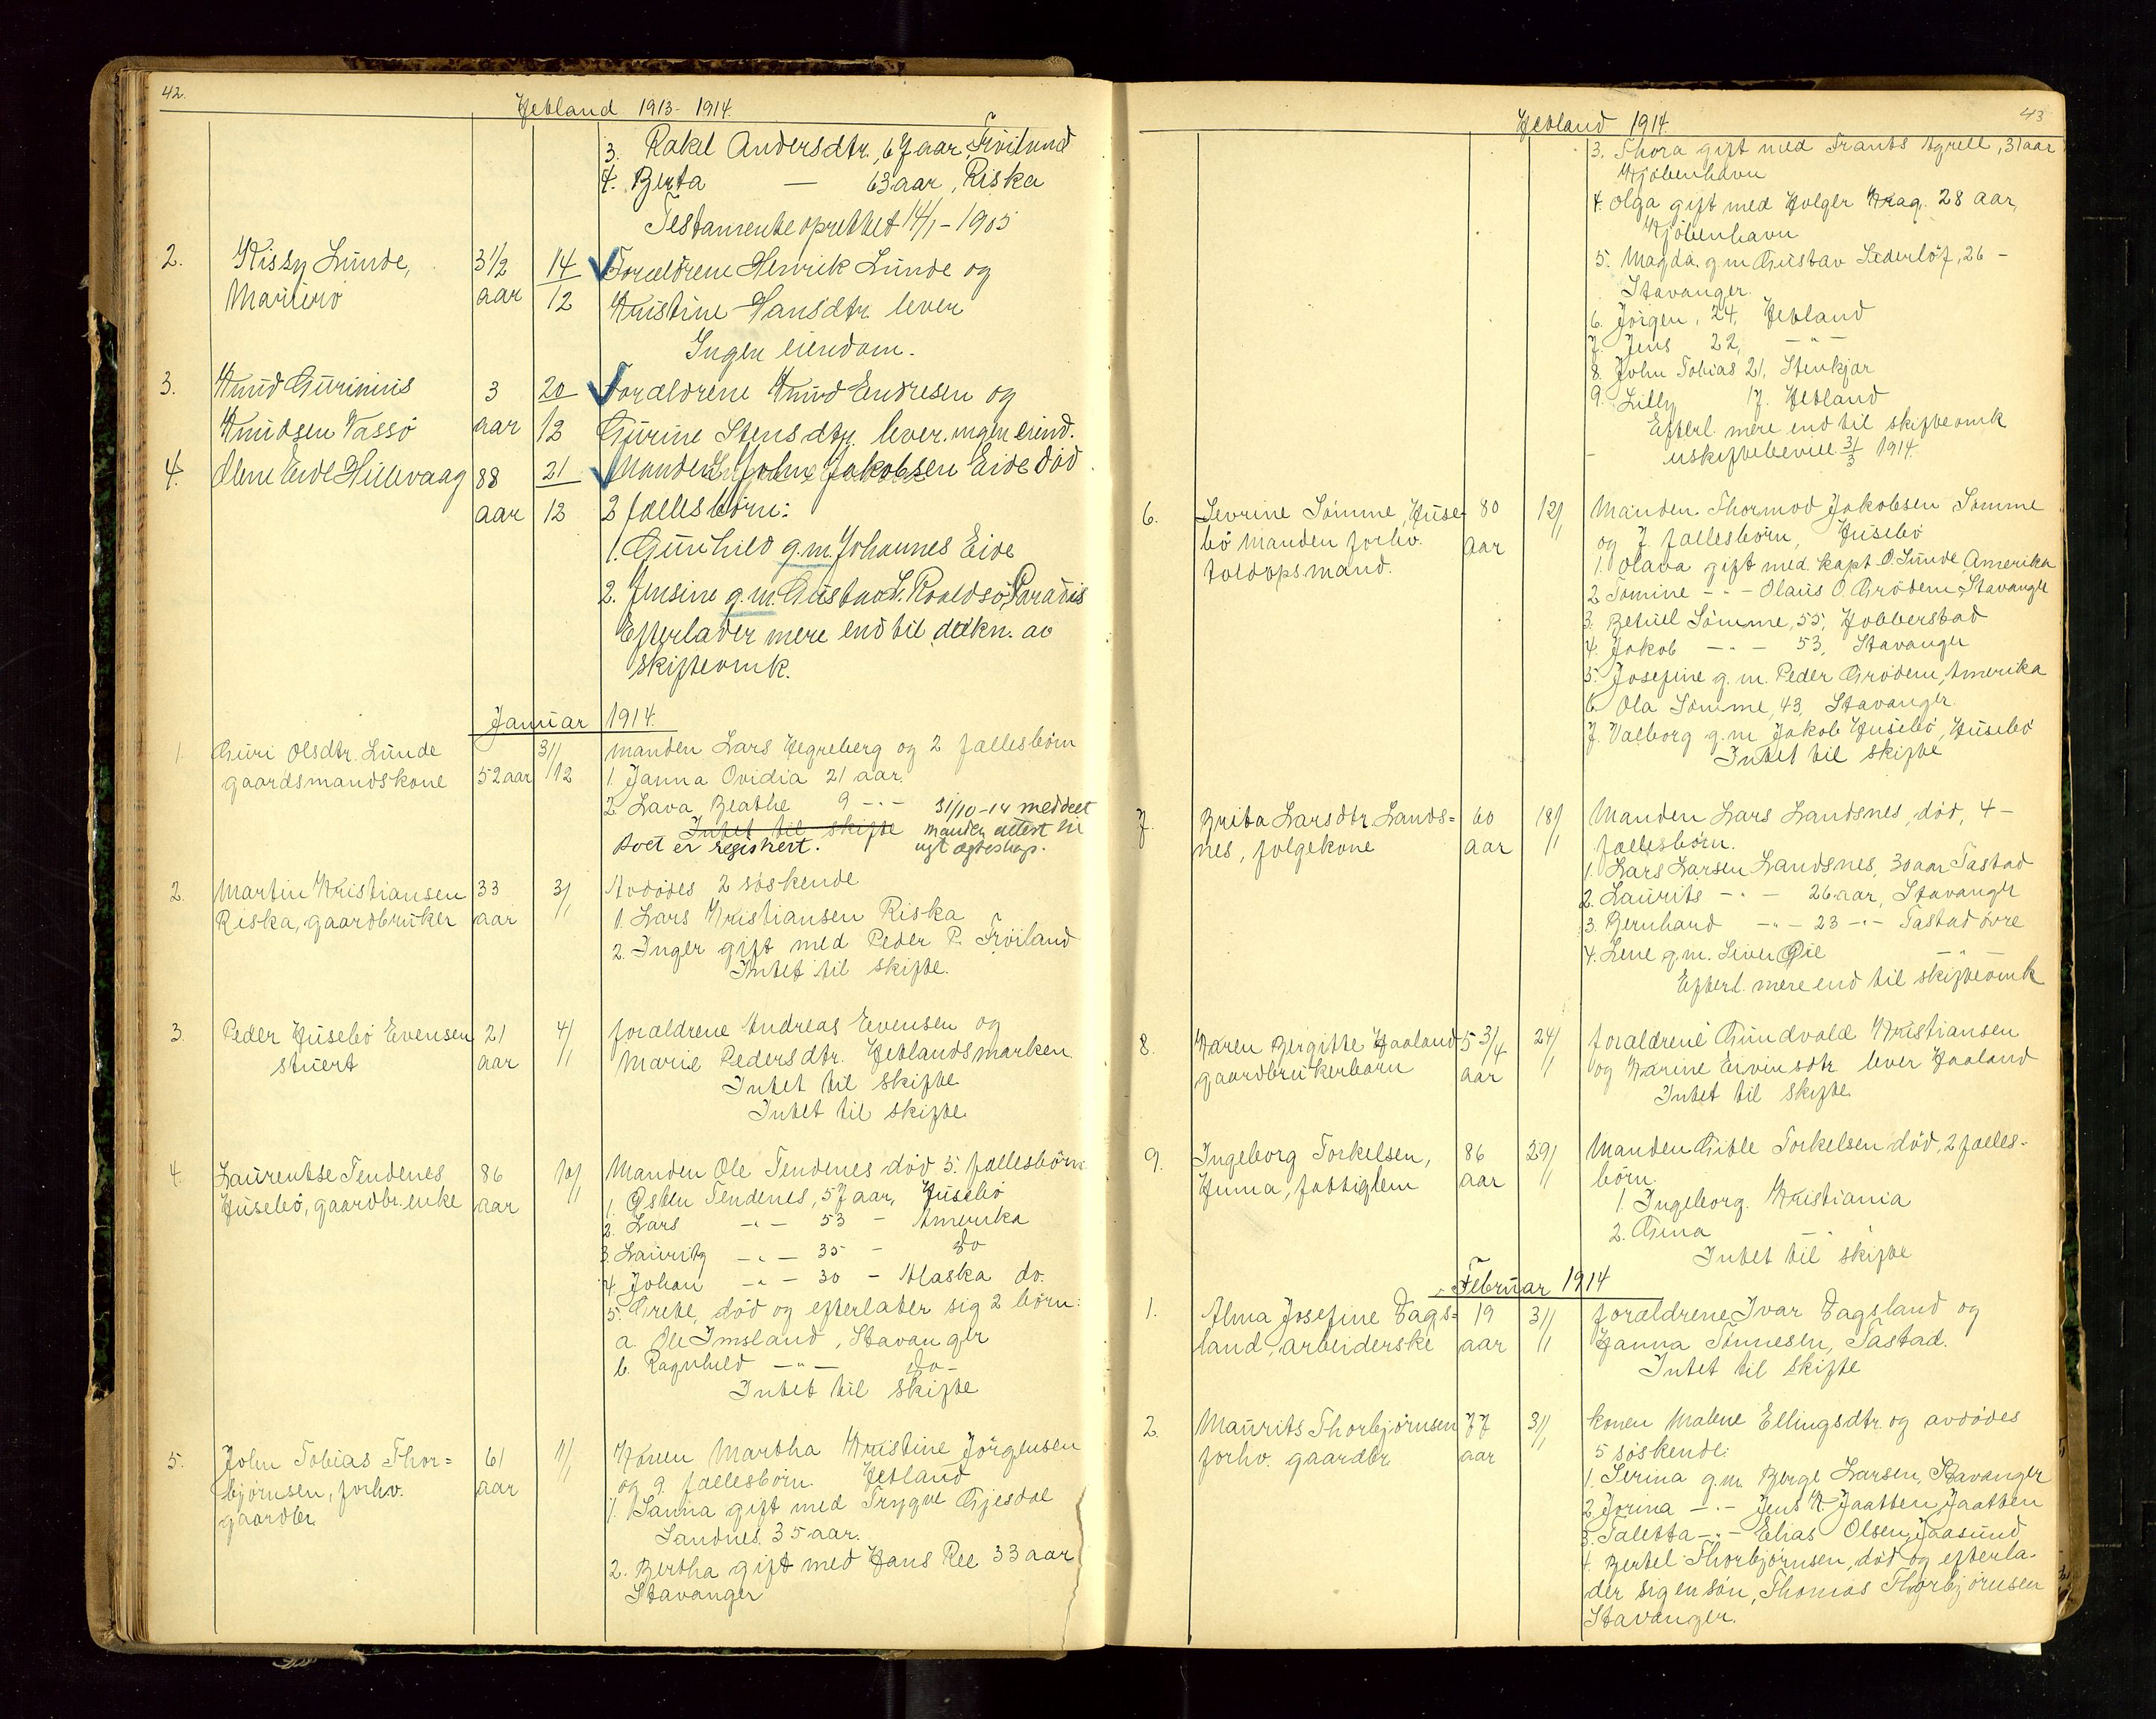 42.
Hetland 1913-1914.
3. Rakel Andersdtr., 67 aar, Fröilund
4. Berta — 63 aar, Riska
Testamente oprettet 14/1-1905
2. Kissy Lunde, 3 1/2 14 Forældrene Henrik Lunde og
Mariero aar 12 Kristine Hansdtr. lever
Ingen eiendom.
3. Knud Gurinius 3 20 Forældrene Knud Endresen og
Knudsen Vassö aar 12 Gurine Stensdtr. lever. ingen eiend.
4. Olene Eide Hillevaag 88 21 Manden John Jakobsen Eide död
aar 12 2 fællesbörn:
1. Gunhild g.m. Johannes Eide
2. Jensine g.m. Gustav L. Roaldsö, Paradis
Efterlader mere end til dækn. av
skifteomk.
Januar 1914.
1. Guri Olsdtr. Lunde 31/ manden Lars Hegreberg og 2 fællesbörn
gaardsmandskone 52 aar /12 1. Janna Ovidia 21 aar
2. Lava Beathe 9 -"- 31/10-14 meddelt
Intet til skifte manden attest til
Boet er registrert. nyt ægteskap.
2. Martin Kristiansen 33 3/ Avdödes 2 söskende
Riska, gaardbruker aar /1 1. Lars Kristiansen Riska
2. Inger gift med Peder P. Fröiland
Intet til skifte.
3. Peder Husebö Evensen 21 4/ forældrene Andreas Evensen og
stuert aar /1 Marie Pedersdtr. Hetlandsmarken
Intet til skifte
Intet til skifte
4. Laurentse Tendenes 86 10/ Manden Ole Tendenes död 5. fællesbörn
Husebö, gaardbr. enke aar /1 1. Östen Tendenes, 57 aar, Husebö
2. Lars -"- 53 - Amerika
3. Lauritz -"- 35 - do
4. Johan -"- 30 - Alaska do.
5. Grete, död og efterlater sig 2 börn:
a. Ole Imsland, Stavanger
b. Ragnhild -"- do-
Intet til skifte
5. John Tobias Thor= 61 11/ Konen Martha Kristine Jörgensen
björnsen, forhv. aar /1 og 9. fællesbörn. Hetland
gaardbr. 1. Sanna gift med Trygve Gjesdal
Sandnes. 35 aar.
2. Bertha gift med Hans Ree 33 aar
Stavanger
43
Hetland 1914.
3. Thora gift med Frants Agrell, 31 aar
Kjöbenhavn
4. Olga gift med Holger Krag. 28 aar,
Kjöbenhavn
5. Magda g.m. Gustav Sederlöf, 26 -
Stavanger.
6. Jörgen, 24, Hetland
7. Jens 22, -"-
8. John Tobias 21, Stenkjær
9. Lilly 17. Hetland
Efterl. mere end til skifteomk
- uskiftebevill. 31/3 1914.
6. Sevrine Sömme, Huse= 80 12/ Manden Thormod Jakobsen Sömme
bö Manden forhv. aar /1 og 7 fællesbörn, Husebö
toldopsmand. 1. Olava gift med kapt O. Lunde Amerika
2. Tomine -"- Olaus O. Grödem, Stavanger
3. Betuel Sömme, 55, Hobberstad
4. Jakob -"- 53, Stavanger
5. Josefine g.m. Peder Grödem, Amerika
6. Ola Sömme, 43, Stavanger
7. Valborg g.m. Jakob Husebö, Husebö
Intet til skifte
7. Brita Larsdtr Lands= 60 18/ Manden Lars Landsnes, död, 4 -
nes, folgekone aar /1 fællesbörn.
1. Lars Larsen Landsnes, 30 aar Tastad
2. Laurits -"- 26 aar, Stavanger
3. Bernhard -"- 23 -"- Tastad övre
4. Lene g.m. Siver Öie -"-
Efterl. mere end til skifteomk
8. Karen Bergitte Haaland 5 3/4 24/ forældrene Gundvald Kristiansen
gaardbrukerbarn aar /1 og Karine Eivinsdtr lever Haaland
Intet til skifte.
9. Ingeborg Torkelsen, 86 29/ Manden Gitle Torkelsen död, 2 fælles-
Hunna, fattiglem aar /1 börn.
1. Ingeborg. Kristiania
2. Gina -"-
Intet til skifte
Februar 1914
1. Alma Josefine Dags= 19 31/ forældrene Ivar Dagsland og
land, arbeiderske aar /1 Hanna Tönnesen, Tastad.
Intet til skifte
2. Maurits Thorbjörnsen 77 31/ konen Malene Ellingsdtr. og avdödes
forhv. gaardbr aar /1 5 söskende:
1. Serina g.m. Börge Larsen, Stavanger
2. Jorina -"- Jens K. Jaatten, Jaatten
3. Taletta -"- Elias Olsen, Jaasund
4. Bertel Thorbjörnsen, död og efterla-
der sig en sön, Thomas Thorbjörnsen
Stavanger.